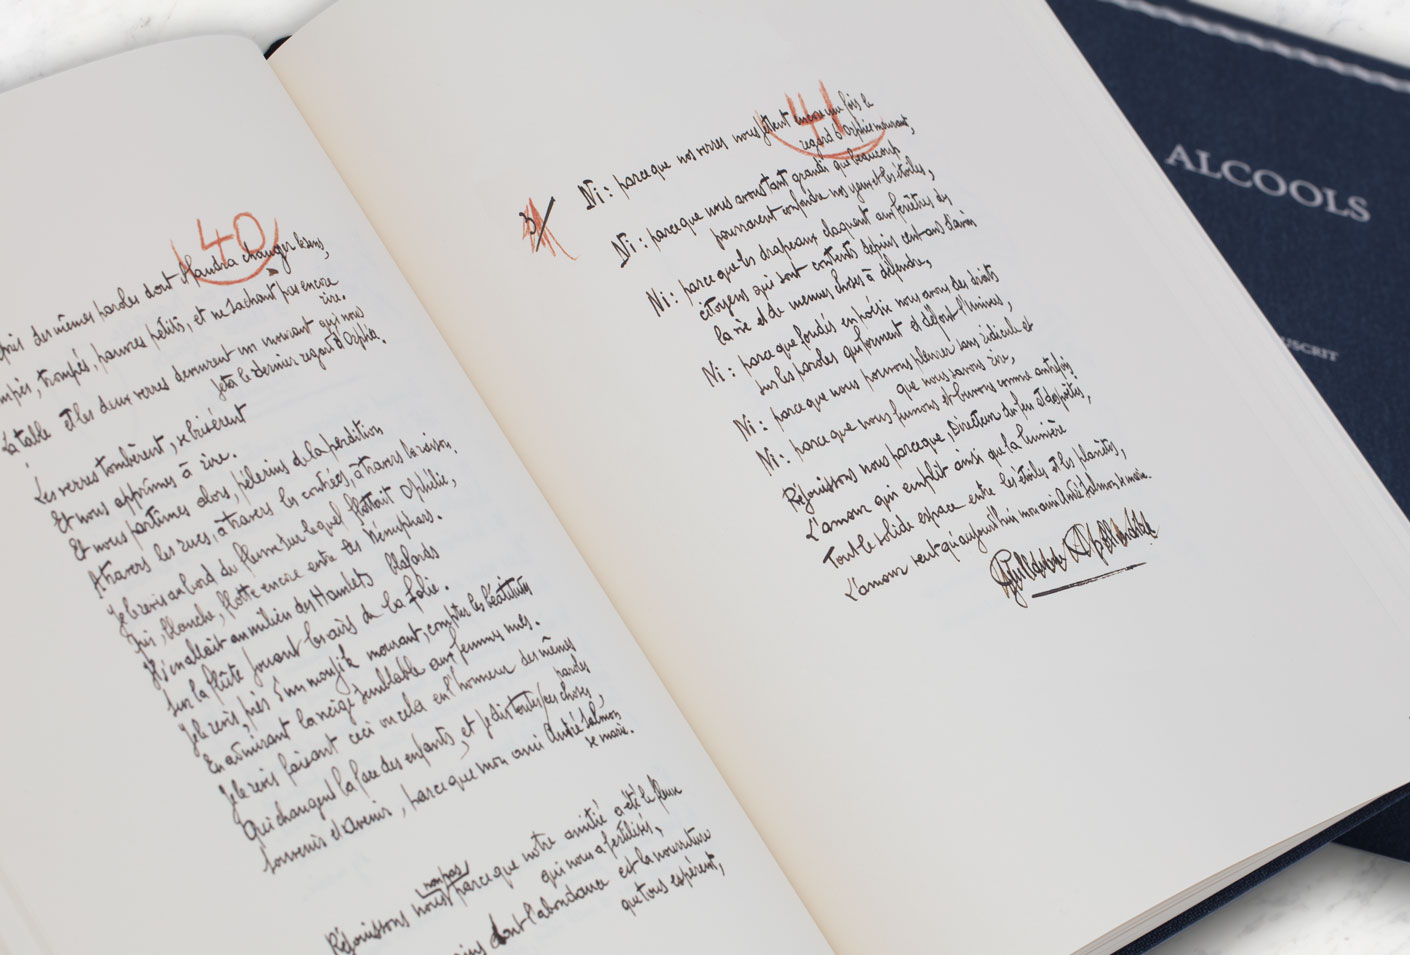 40
près des mêmes paroles dont il faudra changer le sens,
mpés, trompés, pauvres petits, et ne sachant pas encore
rire.
La table et les deux verres devinrent un mourant qui nous
jeta le dernier regard d'Orphée.
Les verres tombèrent, se brisèrent
Et nous apprîmes à rire.
Et nous partîmes alors, pélerins de la perdition
A travers les rues, à travers les contrées, à travers la raison.
Je le revis au bord du fleuve sur lequel flottait Ophélie,
Qui, blanche, flotte encore entre les nénuphars.
Il s'en allait au milieu des Hamlets blafards
Sur la flûte jouant les airs de la folie.
Je le revis, près d'un moujik mourant, compter les béatitudes
En admirant la neige semblable aux femmes nues.
Je le revis faisant ceci ou cela en l'honneur des mêmes
paroles
Qui changent la face des enfants, et je dis toutes ces choses,
Souvenir et Avenir, parce que mon ami André Salmon
se marie.
Réjouissons nous non pas parce que notre amitié a été le fleuve
qui nous a fertilisés,
dont l'abondance est la nourriture
que tous espèrent,
41
3/
Ni : parce que nos verres nous jettent encore une fois le
regard d'Orphée mourant,
Ni : parce que nous avons tant grandi que beaucoup
pourraient confondre nos yeux et les étoiles,
Ni : parce que les drapeaux claquent aux fenêtres des
citoyens qui sont contents depuis cent ans d'avoir
la vie et de menues choses à défendre,
Ni : parce que fondés en poésie nous avons des droits
sur les paroles qui forment et défont l'Univers,
Ni : parce que nous pouvons pleurer sans ridicule et
que nous savons rire,
Ni : parce que nous fumons et buvons comme autrefois
Réjouissons nous parce que, Directeur du feu et des poètes,
L'amour qui emplit ainsi que la lumière
Tout le solide espace entre les étoiles et les planètes,
L'amour veut qu'aujourd'hui mon ami André Salmon se marie.
Guillaume Apollinaire
ALCOOLS
USCRIT